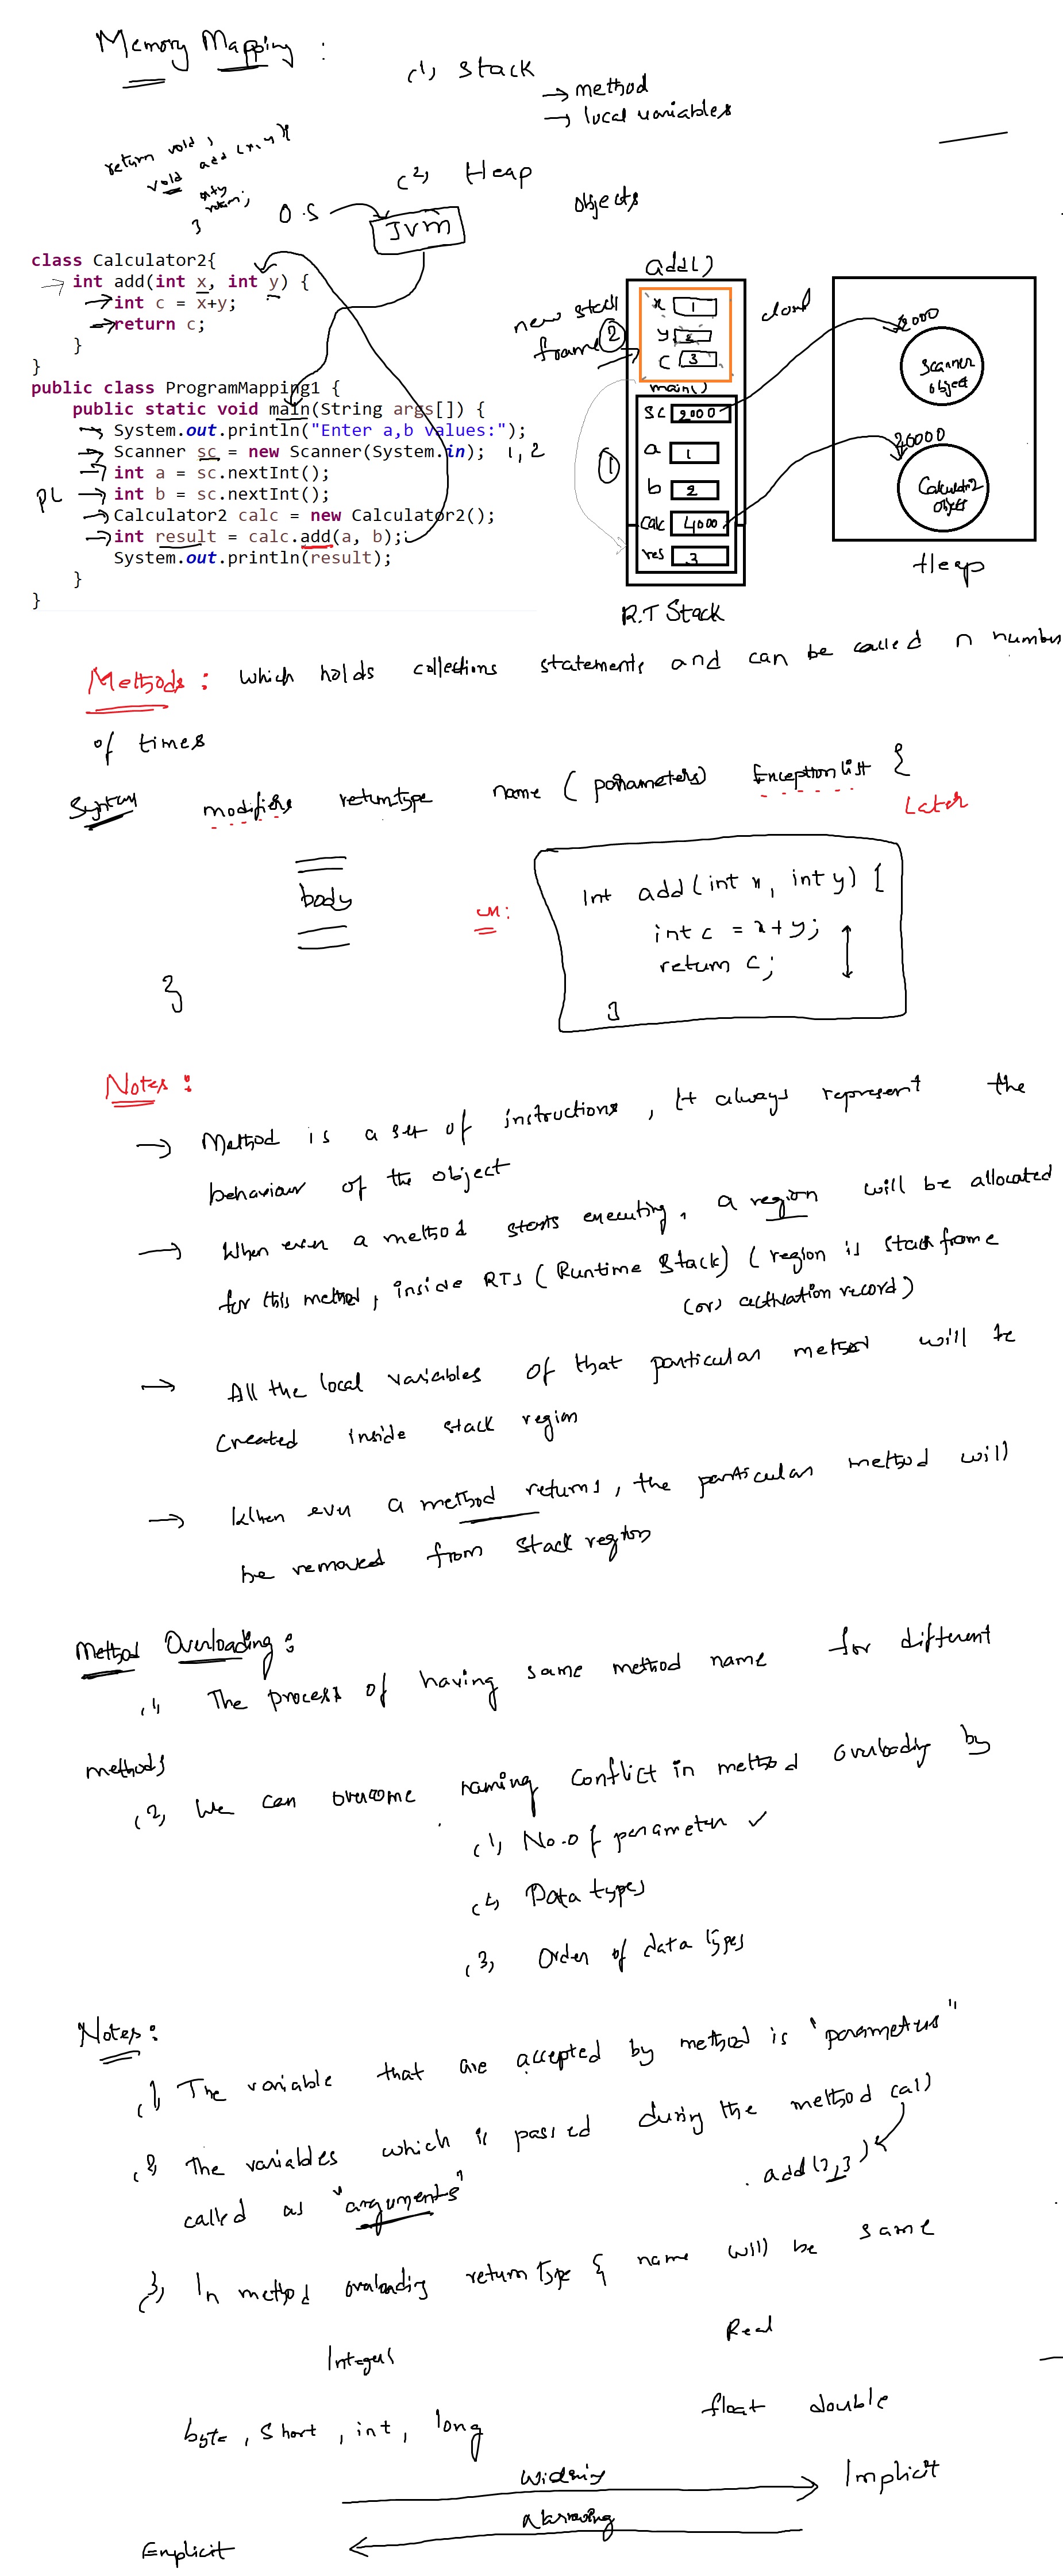 Memory Mapping :
(1) Stack
→ method
→ local variables
return void ;
void add (x, y) {
return;
}
(2) Heap
objects
O.S
JVM
class Calculator2{
int add(int x, int y) {
int c = x+y;
return c;
}
}
public class ProgramMapping1 {
public static void main(String args[]) {
System.out.println("Enter a,b values:");
Scanner sc = new Scanner(System.in); 1, 2
int a = sc.nextInt();
PL
int b = sc.nextInt();
Calculator2 calc = new Calculator2();
int result = calc.add(a, b);
System.out.println(result);
}
}
add()
new stack
frame
2
x 1
y 2
c 3
main()
1
sc 2000
a 1
b 2
calc 4000
res 3
R.T Stack
2000
Scanner
object
40000
Calculator2
object
Heap
Methods : which holds collections statements and can be called n number
of times
Syntax modifiers returntype name ( parameters) Exception list {
Later
body
}
ex:
int add(int x, int y) {
int c = x+y;
return c;
}
Notes :
→ Method is a set of instructions, It always represent the
behaviour of the object
→ When ever a method starts executing, a region will be allocated
for this method, inside RTS (Runtime Stack) (region is stack frame
(or) activation record)
→ All the local variables of that particular method will be
created inside stack region
→ When ever a method returns, the particular method will
be removed from stack region
Method Overloading :
(1) The process of having same method name for different
methods
(2) We can overcome naming conflict in method overloading by
(1) No.of parameter ✓
(2) Data types
(3) Order of data types
Notes :
(1) The variable that are accepted by method is "parameters"
(2) The variables which is passed during the method call
called as "arguments"
add(2,3)
3) In method overloading return type & name will be same
Integers
Real
byte, short, int, long
float double
Widening
Implicit
Narrowing
Explicit